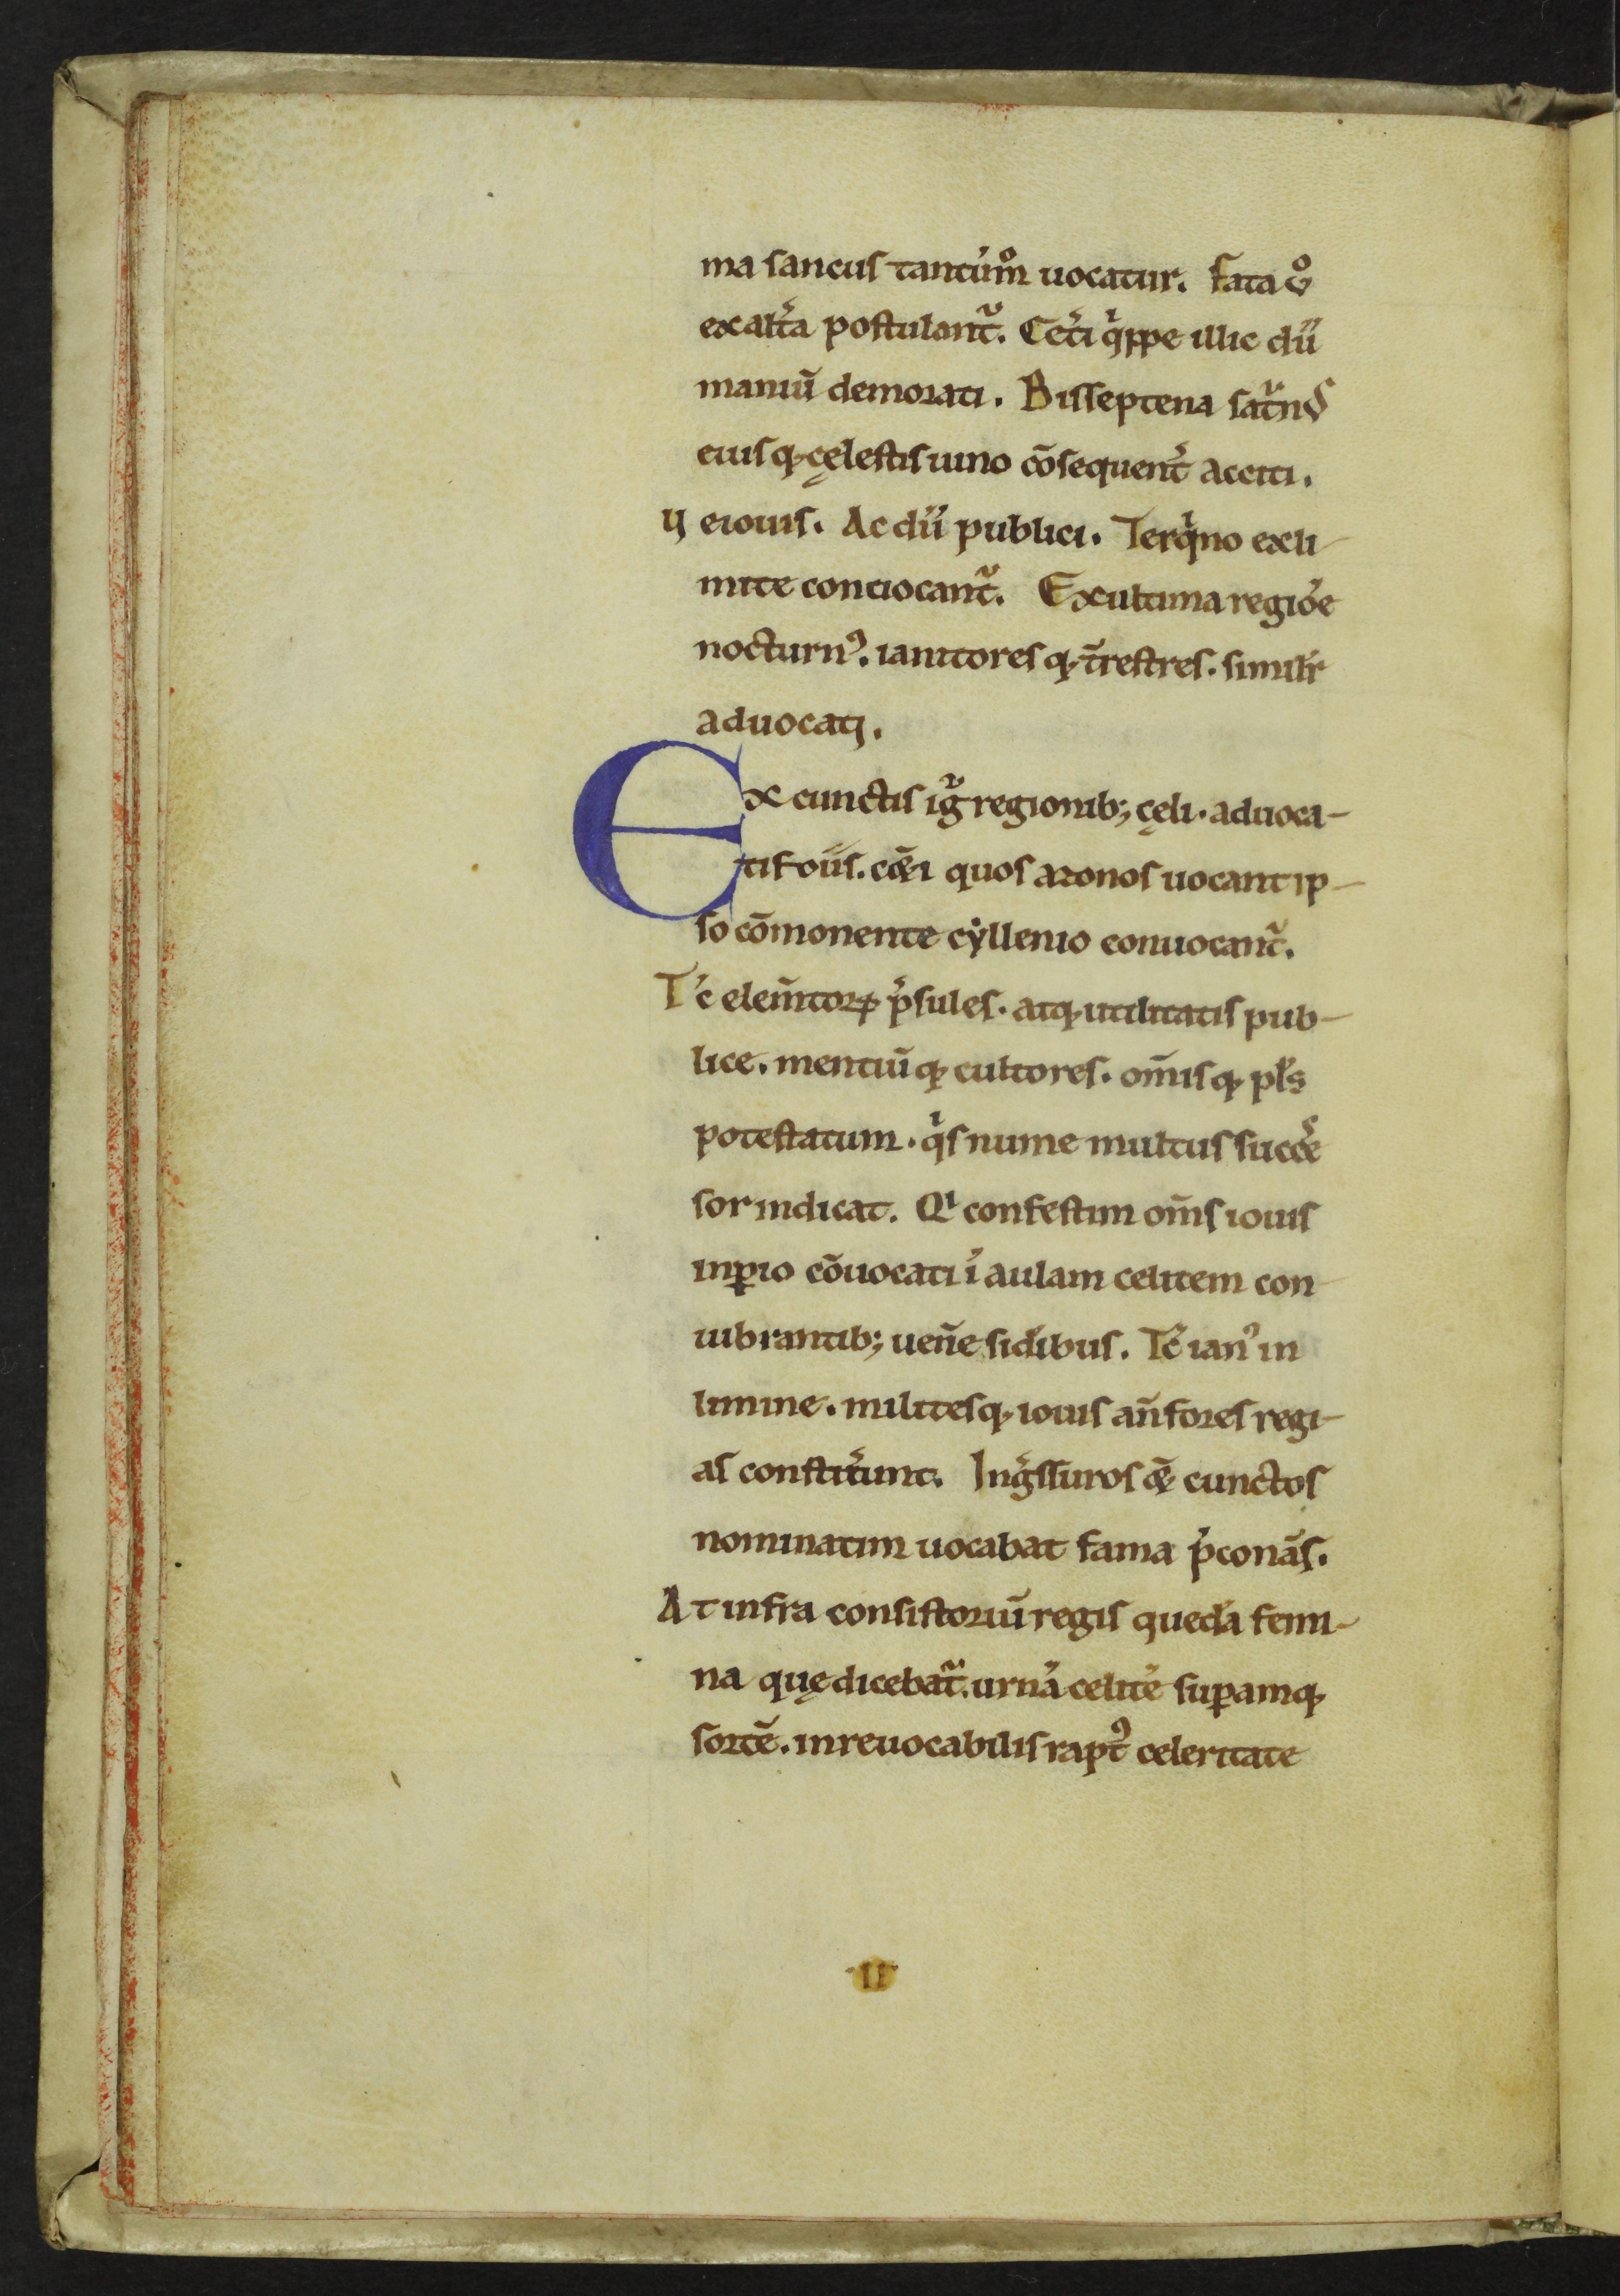 ma sancus tantu̅m̊ uocatur. fata ů
ex alt̾a postulant᷑. Cet̾i qͥppe illic dii
maniū demorati. Bisseptena sat᷑nꝰ
eiusqꝫ cęlestis iuno cōsequent̾ acciti.
Ueiouis. Ac dii publici. Terqͥno ex li-
mite conuocant᷑. Ex ultima regiōe
nocturnꝰ. ianitoresqꝫ t̾restres. similr̄
aduocati.
Ex cunctis igr᷑ regionibꝫ cęli. aduoca-
tis oīs. cet̾i quos azonos uocant ip-
so cōmonente cẏllenio conuocant᷑.
Tc̄ elem̄torꝝ p̄sules. atqꝫ utilitatis pub-
lice. mentiūqꝫ cultores. om̄isqꝫ pls̄
potestatum. qͥs nume multus succe
sor indicat. Qͥ confestim om̄s iouis
inꝑio cōuocati ī aulam celitem con
uibrantibꝫ uen̄e sid̾ibus. Tc̄ ianꝰ in
limine. militesqꝫ iouis an̄ fores regi-
as constit̾unt. Ingͬssuros q̨ cunctos
nominatim uocabat fama p̄conās.
At infra consistoriū regis quedā femi-
na quę dicebat᷑. urnā celitē suꝑamqꝫ
sortē. inreuocabilis raptꝰ celeritate
·II·